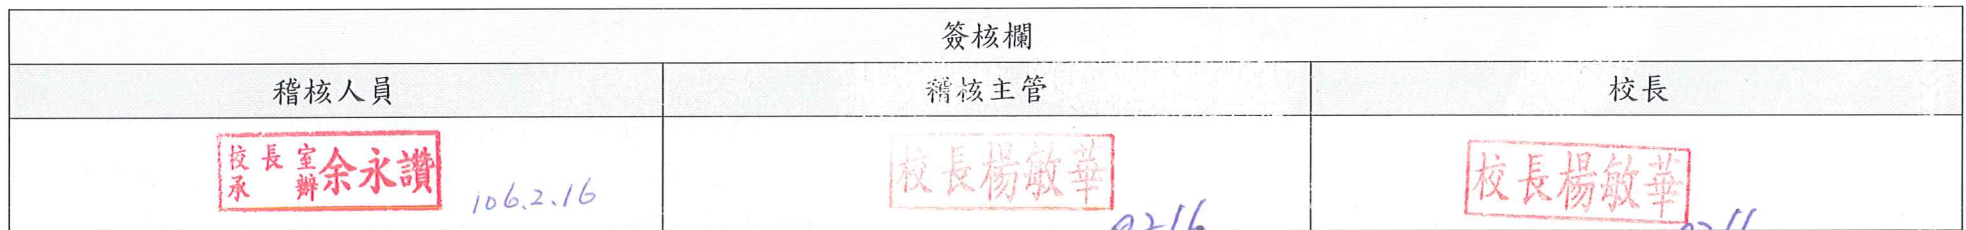 簽核欄
稽核人員 稽核主管 校長
校長室
承辦 余永讚 106.2.16 校長楊敏華 0216 校長楊敏華